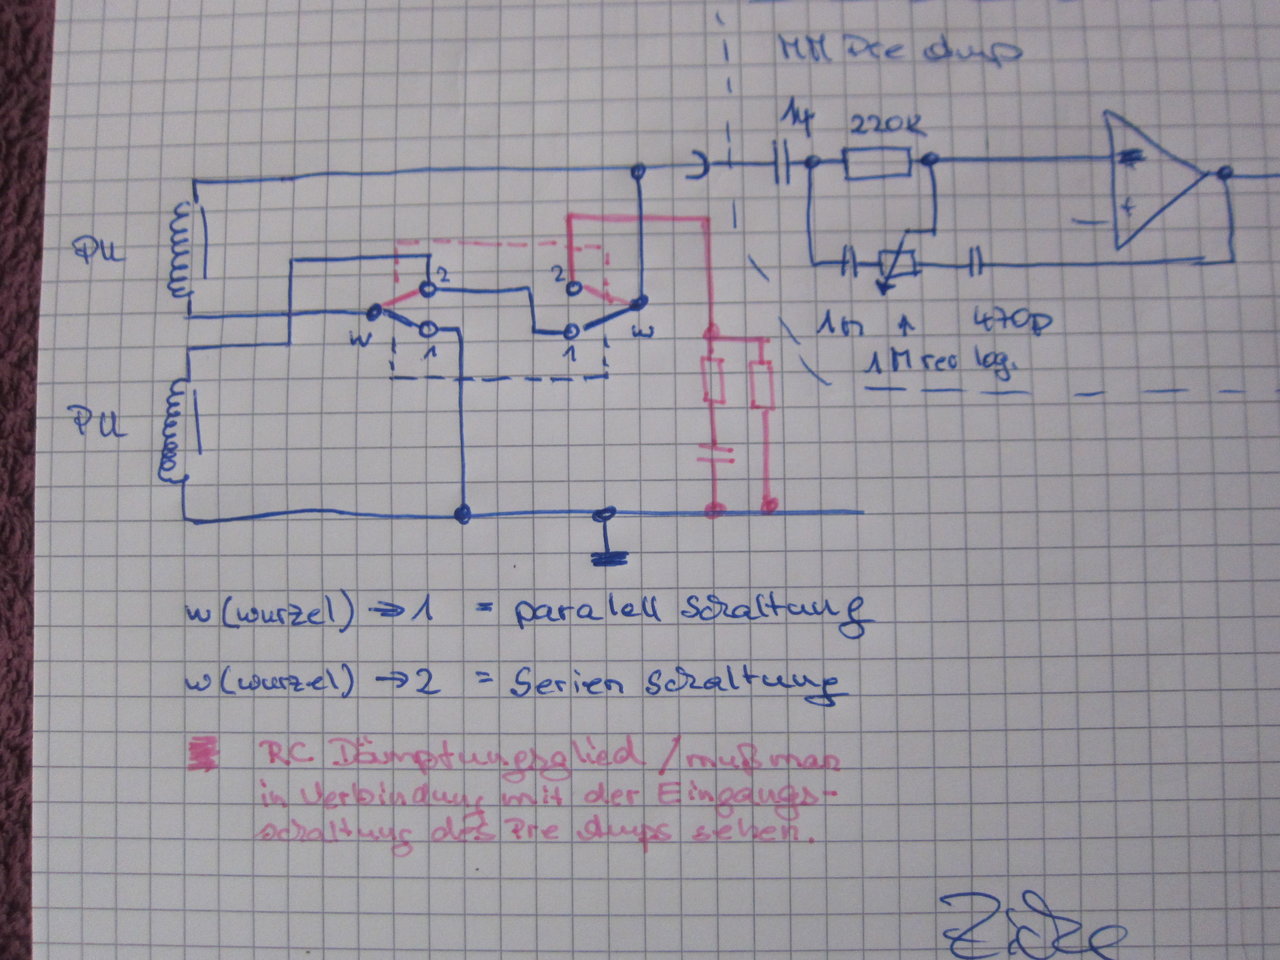 MM Pre Amp
1µ 220K
PU
2 2
+
W 1 1 W
1n 470p
1M rec log.
PU
w (wurzel) → 1 = paralell Schaltung
w (wurzel) → 2 = Serien Schaltung
RC Dämpfungsglied / muß man
in Verbindung mit der Eingangs-
schaltung des Pre Amps sehen.